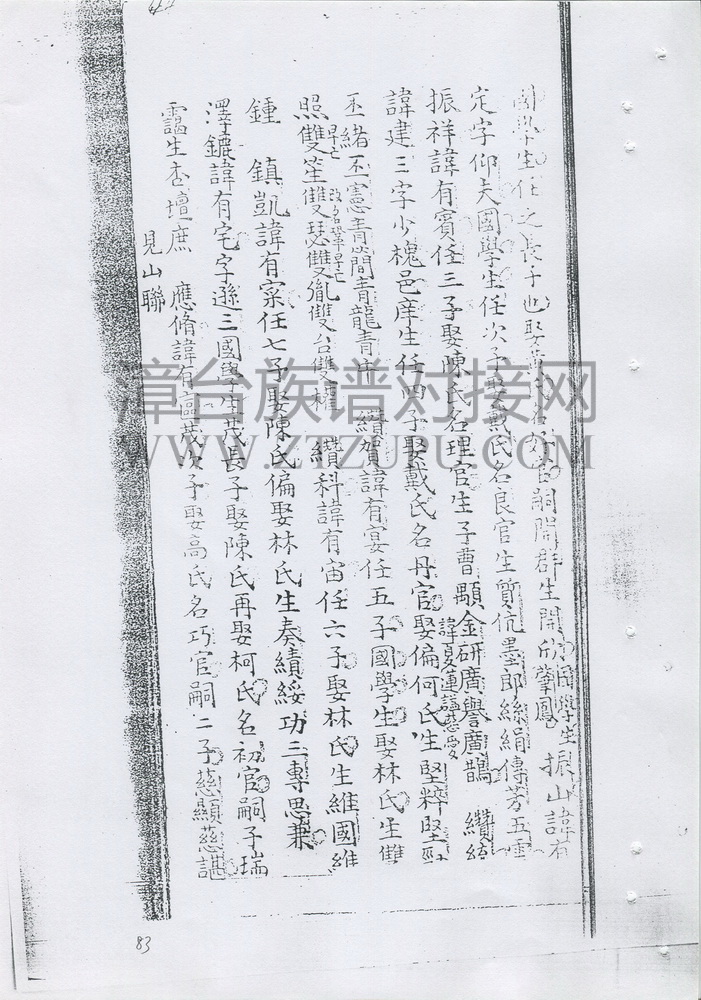 國學生任之長子也娶黃氏名好官嗣開群生開欣肇鳳國學生 振山諱有
定字仰夫國學生任次子娶戴氏名良官生質伉墨郎絲絹傳芳五雲
振祥諱有賓任三子娶陳氏名理官生子曹顯金研廣譽廣鵲 纘
諱建三字少槐邑庠生任四子娶戴氏名丹官娶偏何氏生堅粹堅
諱夏蓮諡慈愛
丕緒丕憲青簡青龍青 纘賀諱有宴任五子國學生娶林氏生雙
早亡
照雙笙雙瑟雙胤雙台雙權 纘科諱有宙任六子娶林氏生維國維
改名肇早亡
鍾 鎮凱諱有寀任七子娶陳氏偏娶林氏生奏績綏功三專思兼
澤鑣諱有宅字遜三國學生茂長子娶陳氏再娶柯氏名初官嗣子瑞
靄生杏壇庶 應脩諱有區茂次子娶高氏名巧官嗣二子慈顯慈諶
見山聯
83
漳台族谱对接网
WWW.ZTZUPU.COM